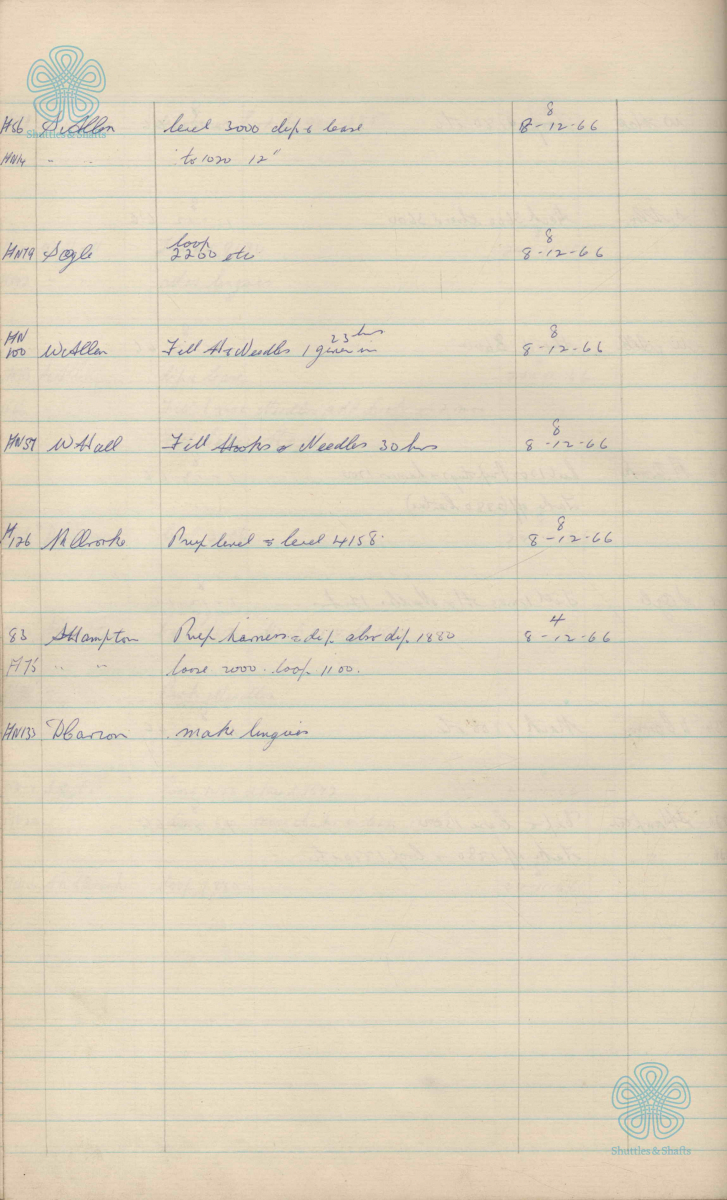 8
H56 S. Allen level 3000 dip & lease 8-12-66
Shuttles & Shafts
HN14 " " to 1020 12"
loop 8
HN79 2200 etc 8-12-66
HN 23 hrs 8
100 W Allen Fill H & Needles 1 given in 8-12-66
8
HN57 W Hall Fill Hooks & Needles 30 hrs 8-12-66
8
H126 Prep level & level 4158. 8-12-66
4
83 S Hampton Prep harness & dip. also dip. 1880 8-12-66
H75 " " loose 2000. loop 1100.
HN133 make lingoes
Shuttles & Shafts